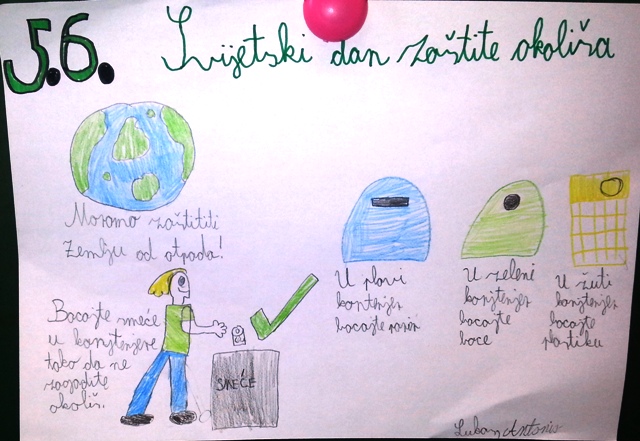 5.6. Svjetski dan zaštite okoliša
Moramo zaštititi
Zemlju od otpada!
Bacajte smeće
u kontejnere
tako da ne
zagadite
okoliš.
SMEĆE
U plavi
kontenjer
bacajte papir
U zeleni
kontenjer
bacajte
boce
U žuti
kontenjer
bacajte
plastiku
Antonio